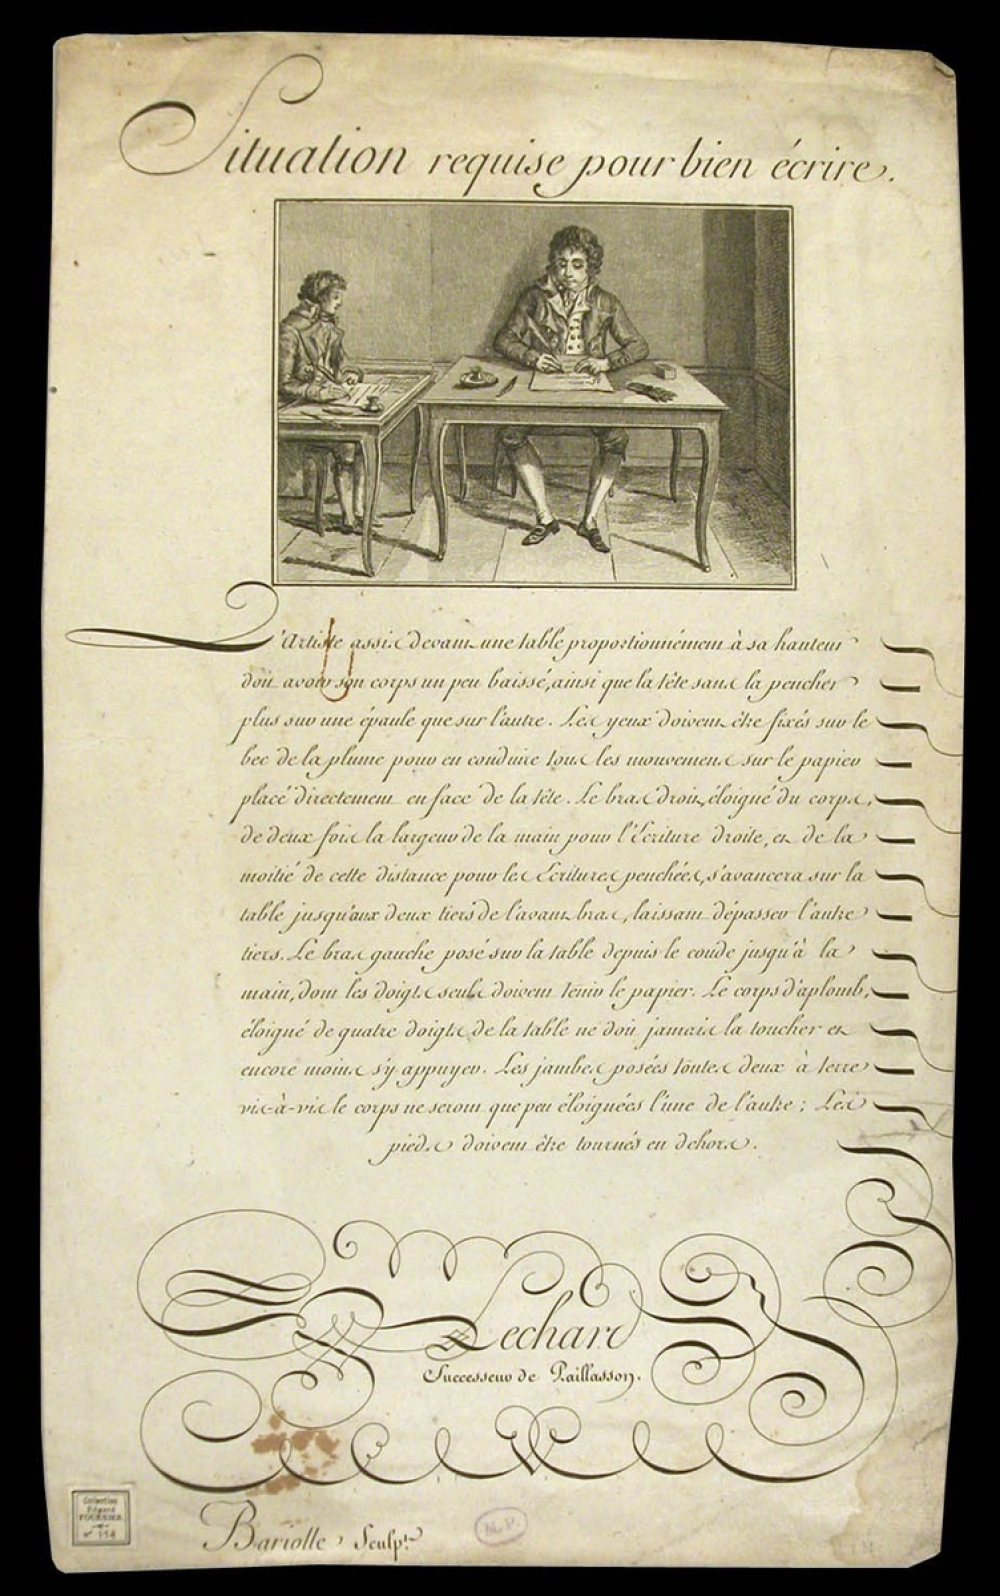 Situation requise pour bien écrire.
L'Artiste assis devant une table proportionnément à sa hauteur
doit avoir son corps un peu baissé, ainsi que la tête sans la pencher
plus sur une épaule que sur l'autre. Les yeux doivent être fixés sur le
bec de la plume pour en conduire tous les mouvemens sur le papier
placé directement en face de la tête. Le bras droit, éloigné du corps,
de deux fois la largeur de la main pour l'Ecriture droite, et de la
moitié de cette distance pour les Ecritures penchées, s'avancera sur la
table jusqu'aux deux tiers de l'avant bras, laissant dépasser l'autre
tiers. Le bras gauche posé sur la table depuis le coude jusqu'à la
main, dont les doigts seuls doivent tenir le papier. Le corps d'aplomb,
éloigné de quatre doigts de la table ne doit jamais la toucher et
encore moins s'y appuyer. Les jambes posées toutes deux à terre
vis-à-vis le corps ne seront que peu éloignées l'une de l'autre ; Les
pieds doivent être tournés en dehors.
Lechard
Successeur de Paillasson.
Bariolle Sculpt.
Collection
Edgard
FOURNIER